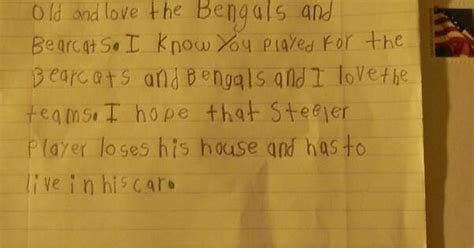 Old and love the Bengals and
Bearcats. I know You played for the
Bearcats and Bengals and I love the
teams. I hope that Steeler
Player loses his house and has to
live in his car.